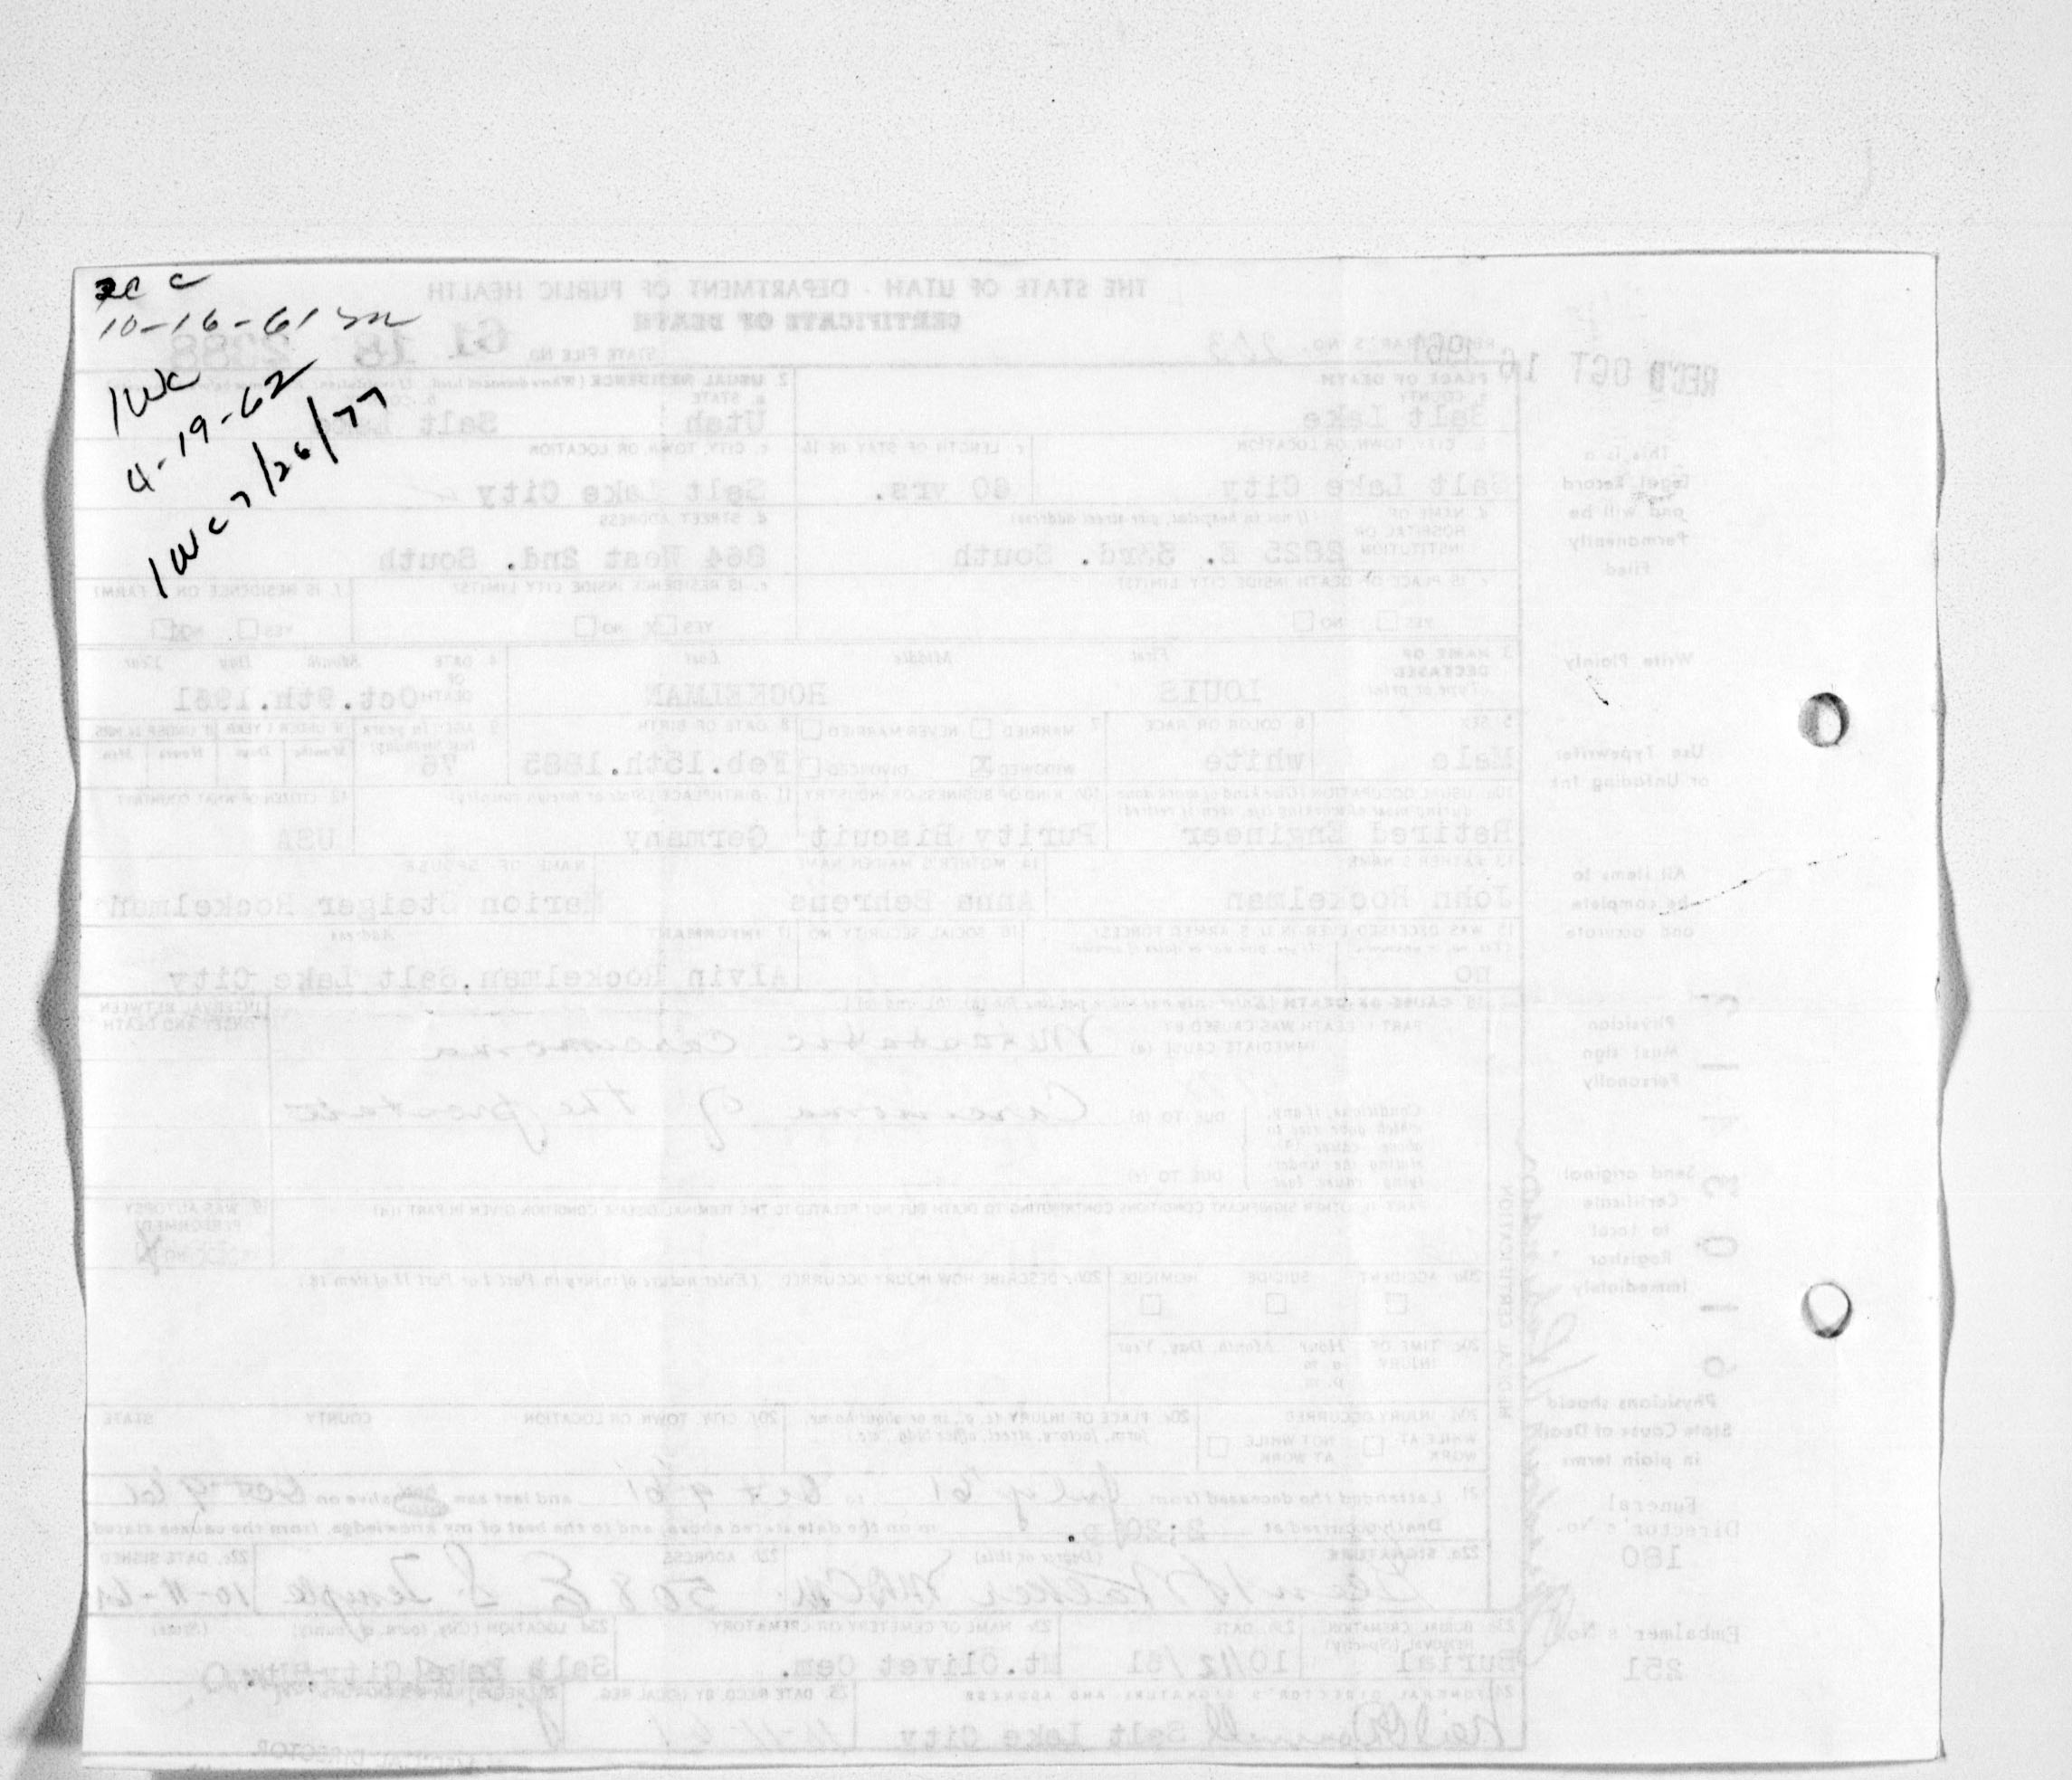 2c c
10-16-61 sm
1wc
4-19-62
1wc 7/26/77
THE STATE OF UTAH - DEPARTMENT OF PUBLIC HEALTH
CERTIFICATE OF DEATH
REC'D OCT 16 1961
REGISTRAR'S NO. 223
STATE FILE NO. 61 18 2388
1. PLACE OF DEATH
a. COUNTY
Salt Lake
2. USUAL RESIDENCE
a. STATE
Utah
Salt Lake
b. CITY, TOWN OR LOCATION
Salt Lake City
c. LENGTH OF STAY IN 1b
60 yrs.
c. CITY, TOWN OR LOCATION
Salt Lake City
d. NAME OF HOSPITAL OR INSTITUTION
(If not in hospital, give street address)
2825 E. 33rd. South
d. STREET ADDRESS
864 West 2nd. South
e. IS PLACE OF DEATH INSIDE CITY LIMITS?
YES NO
e. IS RESIDENCE INSIDE CITY LIMITS?
YES X NO
f. IS RESIDENCE ON A FARM?
YES NO
3. NAME OF DECEASED
(Type or print)
First Middle Last
LOUIS ROCKELMAN
4. DATE OF DEATH
Month Day Year
Oct.9th.1961
5. SEX
Male
6. COLOR OR RACE
white
7. MARRIED NEVER MARRIED
WIDOWED X DIVORCED
8. DATE OF BIRTH
Feb.15th.1885
9. AGE (In years last birthday)
76
IF UNDER 1 YEAR IF UNDER 24 HRS.
Months Days Hours Min.
10a. USUAL OCCUPATION (Give kind of work done during most of working life, even if retired)
Retired Engineer
10b. KIND OF BUSINESS OR INDUSTRY
Purity Biscuit
11. BIRTHPLACE (State or foreign country)
Germany
12. CITIZEN OF WHAT COUNTRY?
USA
13. FATHER'S NAME
John Rockelman
14. MOTHER'S MAIDEN NAME
Anna Behrens
NAME OF SPOUSE
Marion Steiger Rockelman
15. WAS DECEASED EVER IN U.S. ARMED FORCES?
no
16. SOCIAL SECURITY NO.
17. INFORMANT Address
Alvin Rockelman, Salt Lake City
18. CAUSE OF DEATH
PART I. DEATH WAS CAUSED BY
IMMEDIATE CAUSE (a) Metastatic carcinoma
INTERVAL BETWEEN ONSET AND DEATH
Conditions, if any, which gave rise to above cause (a) stating the underlying cause last
DUE TO (b) Carcinoma of the prostate
DUE TO (c)
PART II. OTHER SIGNIFICANT CONDITIONS CONTRIBUTING TO DEATH BUT NOT RELATED TO THE TERMINAL DISEASE CONDITION GIVEN IN PART I(a)
19. WAS AUTOPSY PERFORMED?
20a. ACCIDENT SUICIDE HOMICIDE
20b. DESCRIBE HOW INJURY OCCURRED (Enter nature of injury in Part I or Part II of item 18.)
20c. TIME OF INJURY Hour Month, Day, Year
a.m.
p.m.
20d. INJURY OCCURRED
WHILE AT WORK NOT WHILE AT WORK
20e. PLACE OF INJURY (e.g., in or about home, farm, factory, street, office bldg., etc.)
20f. CITY, TOWN OR LOCATION COUNTY STATE
21. I attended the deceased from July '61 to Oct 9 61 and last saw alive on Oct 9 61
Death occurred at 2:20 p. m on the date stated above, and to the best of my knowledge, from the causes stated
22a. SIGNATURE (Degree or title)
22b. ADDRESS
508 E. S. Temple
22c. DATE SIGNED
10-11-61
23a. BURIAL, CREMATION, REMOVAL (Specify)
Burial
23b. DATE
10/12/61
23c. NAME OF CEMETERY OR CREMATORY
Mt.Olivet Cem.
23d. LOCATION (City, town, or county) (State)
Salt Lake City
24. FUNERAL DIRECTOR'S SIGNATURE AND ADDRESS
Salt Lake City
25. DATE RECD. BY LOCAL REG.
MEDICAL CERTIFICATION
This is a Legal Record and will be Permanently Filed
Write Plainly
Use Typewriter or Unfading Ink
All items to be complete and accurate
Physician Must sign Personally
Send original Certificate to Local Registrar Immediately
Physicians should State Cause of Death in plain terms
Funeral Director's No.
180
Embalmer's No.
251